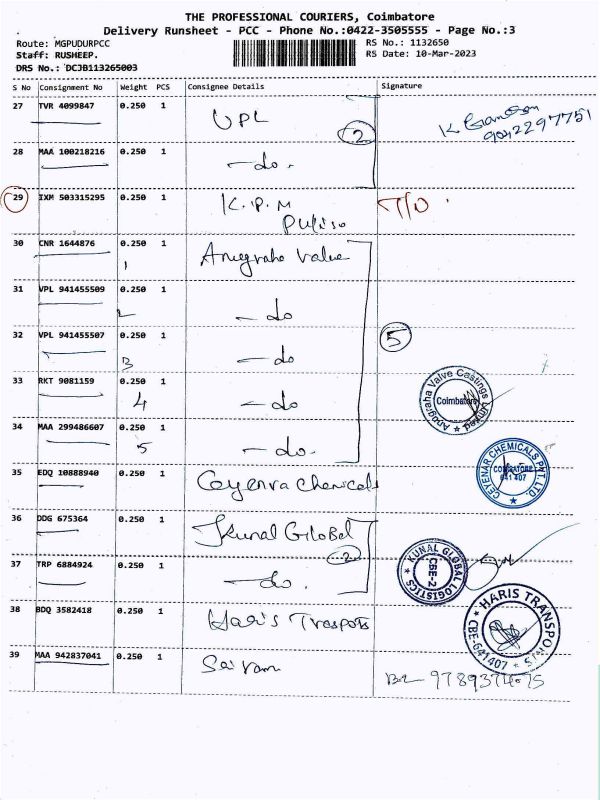 THE PROFESSIONAL COURIERS, Coimbatore
Delivery Runsheet - PCC - Phone No.:0422-3505555 - Page No.:3
Route: MGPUDURPCC
RS No.: 1132650
Staff: RUSHEEP.
RS Date: 10-Mar-2023
DRS No.: DCJB113265003
S No Consignment No Weight PCS Consignee Details Signature
27 TVR 4099847 0.250 1 UPL
2
9042297751
28 MAA 100218216 0.250 1 - do.
29 IXM 503315295 0.250 1 K.P.M T/D.
30 CNR 1644876 0.250 1 Anugraha Value
1
31 VPL 941455509 0.250 1 - do
2
32 VPL 941455507 0.250 1 - do 5
3
33 RKT 9081159 0.250 1 - do
4
Anugraha Valve Castings Limited
Coimbatore
34 MAA 299486607 0.250 1 - do.
5
35 EDQ 10888940 0.250 1 Ceyenra Chemicals
CEYENAR CHEMICALS PVT. LTD.
COIMBATORE
641 407
36 DDG 675364 0.250 1 Kunal Global
2
37 TRP 6884924 0.250 1 - do.
KUNAL GLOBAL LOGISTICS
CBE-2
38 BDQ 3582418 0.250 1 Haris Trasports
HARIS TRANSPO
CBE-641407
39 MAA 942837041 0.250 1 Sairam